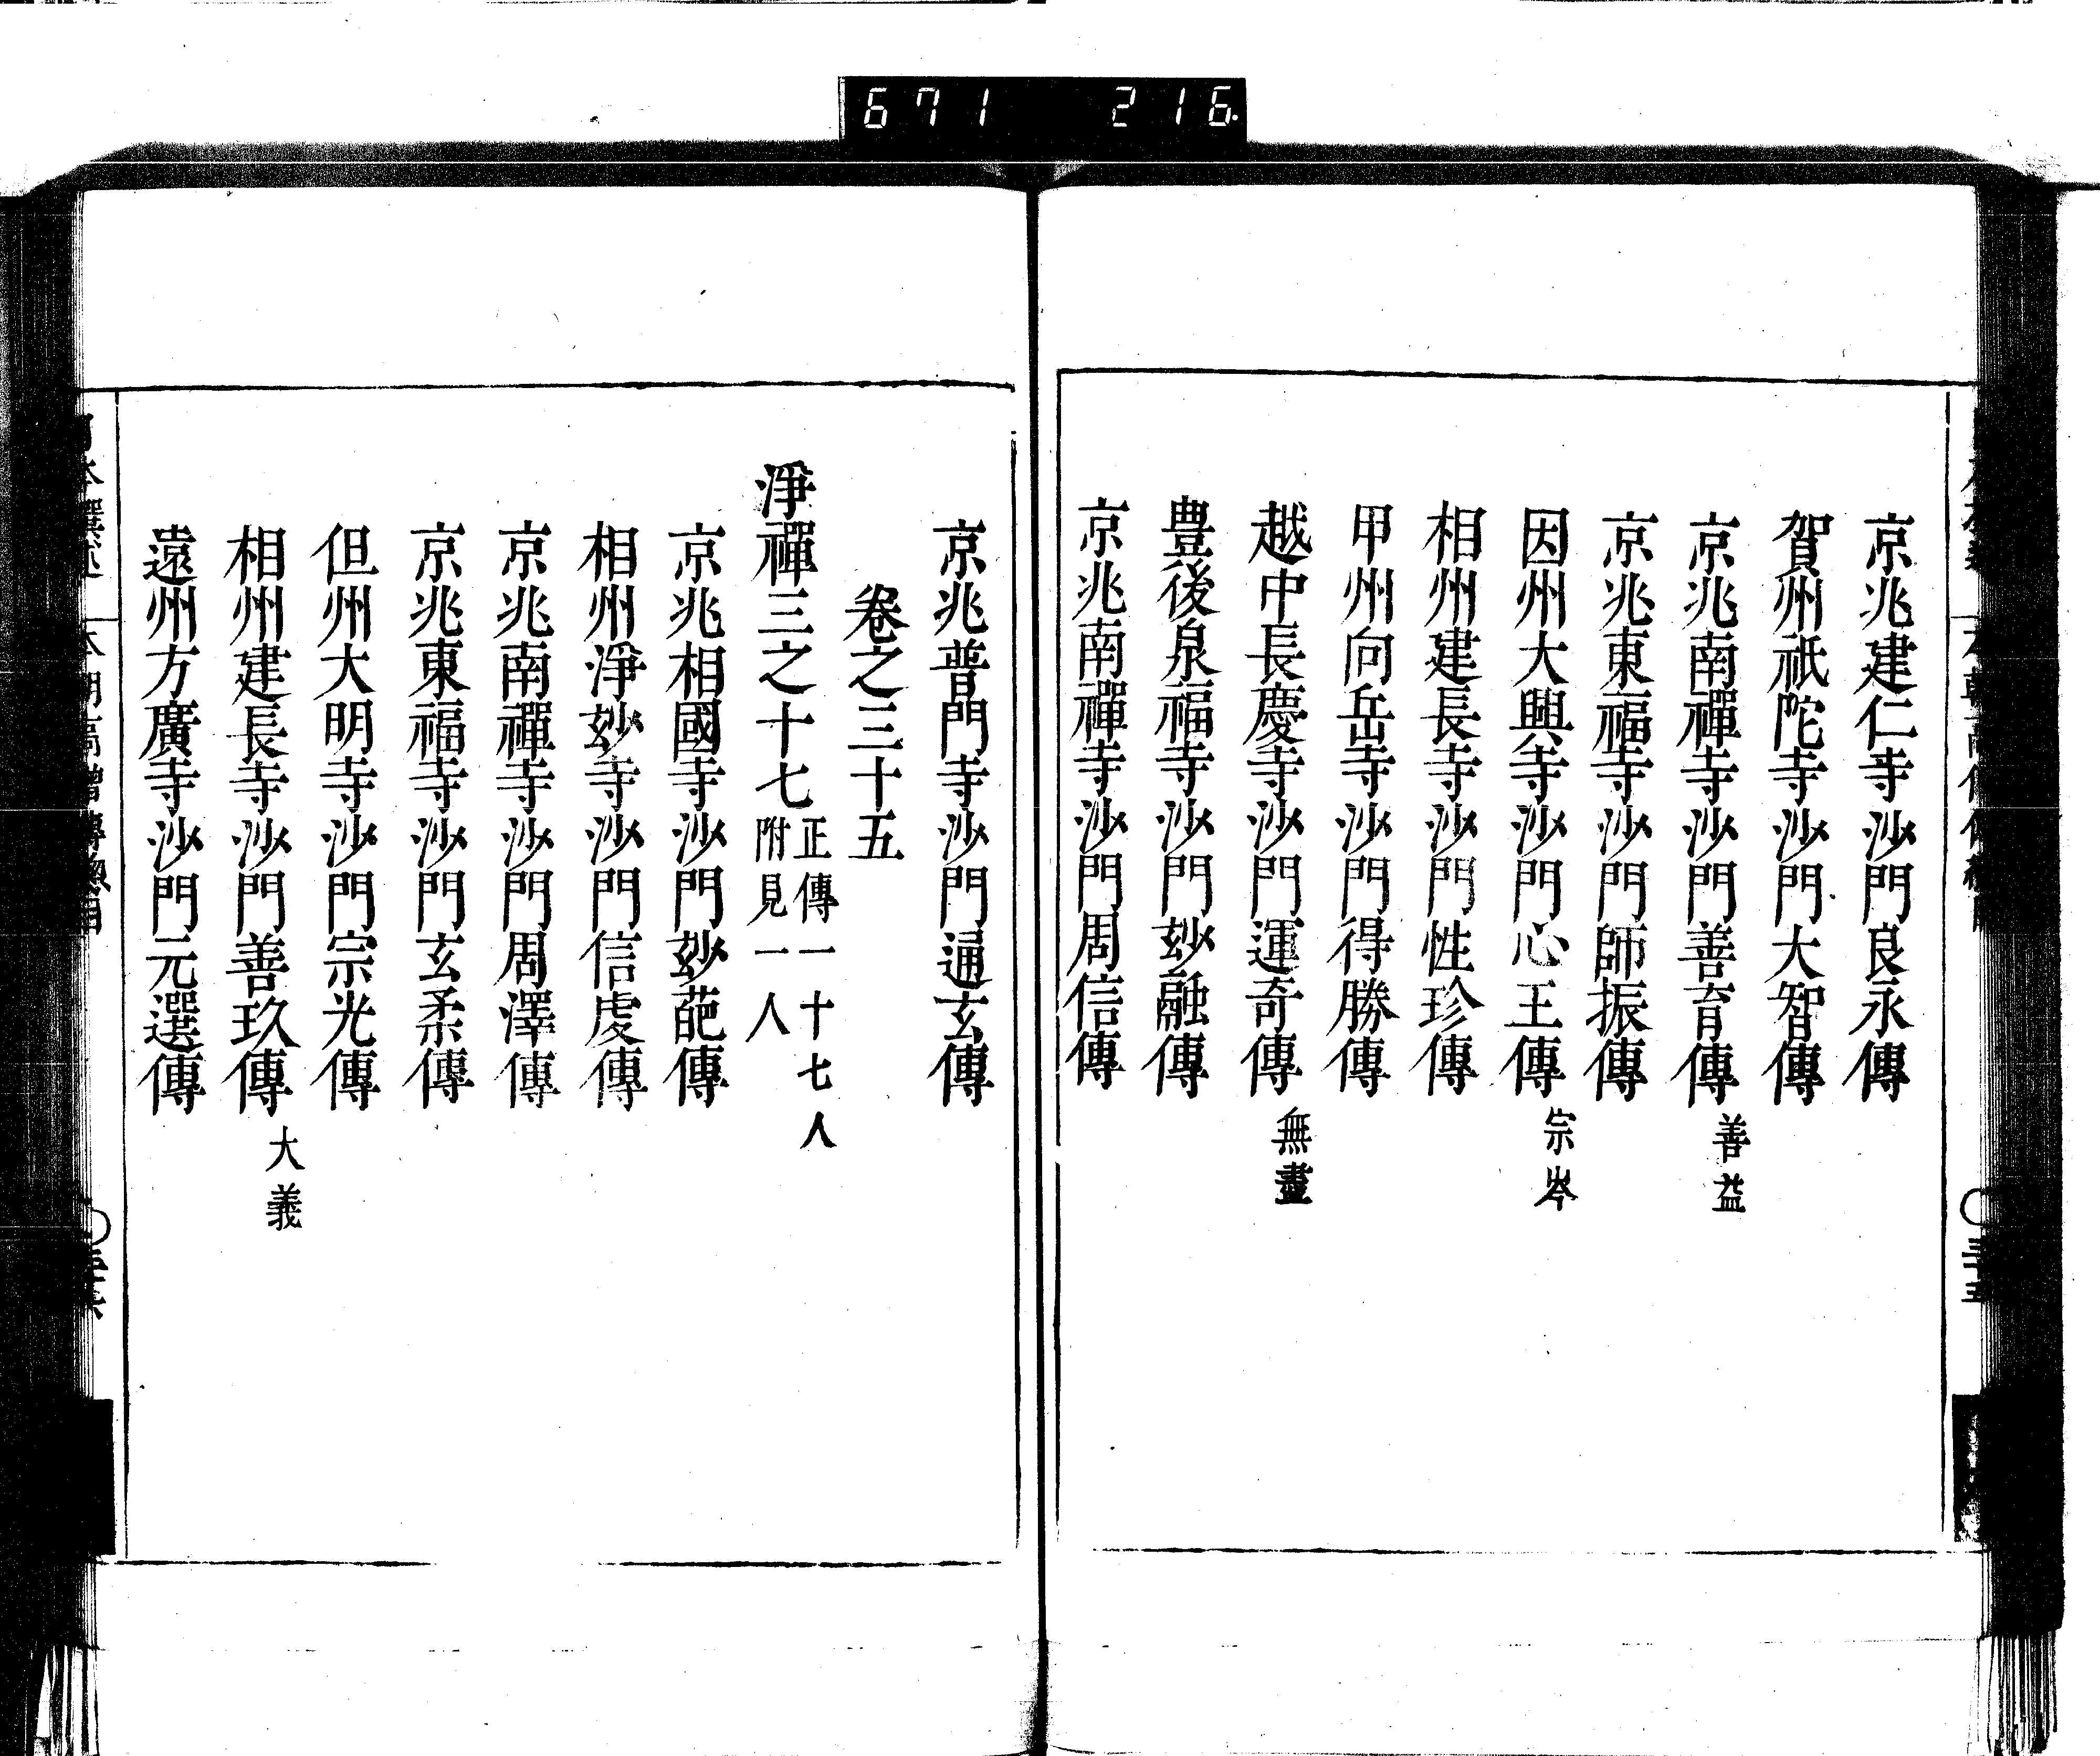 671 216
京兆建仁寺沙門良永傳
賀州祇陀寺沙門大智傳
京兆南禪寺沙門善育傳 善益
京兆東福寺沙門師振傳
因州大興寺沙門心王傳 宗岑
相州建長寺沙門性珍傳
甲州向岳寺沙門得勝傳
越中長慶寺沙門運奇傳 無盡
豊後泉福寺沙門妙融傳
京兆南禪寺沙門周信傳
京兆普門寺沙門通玄傳
卷之三十五
淨禪三之十七 正傳一十七人 附見一人
京兆相國寺沙門妙葩傳
相州淨妙寺沙門信虔傳
京兆南禪寺沙門周澤傳
京兆東福寺沙門玄柔傳
但州大明寺沙門宗光傳
相州建長寺沙門善玖傳 大義
遠州方廣寺沙門元選傳